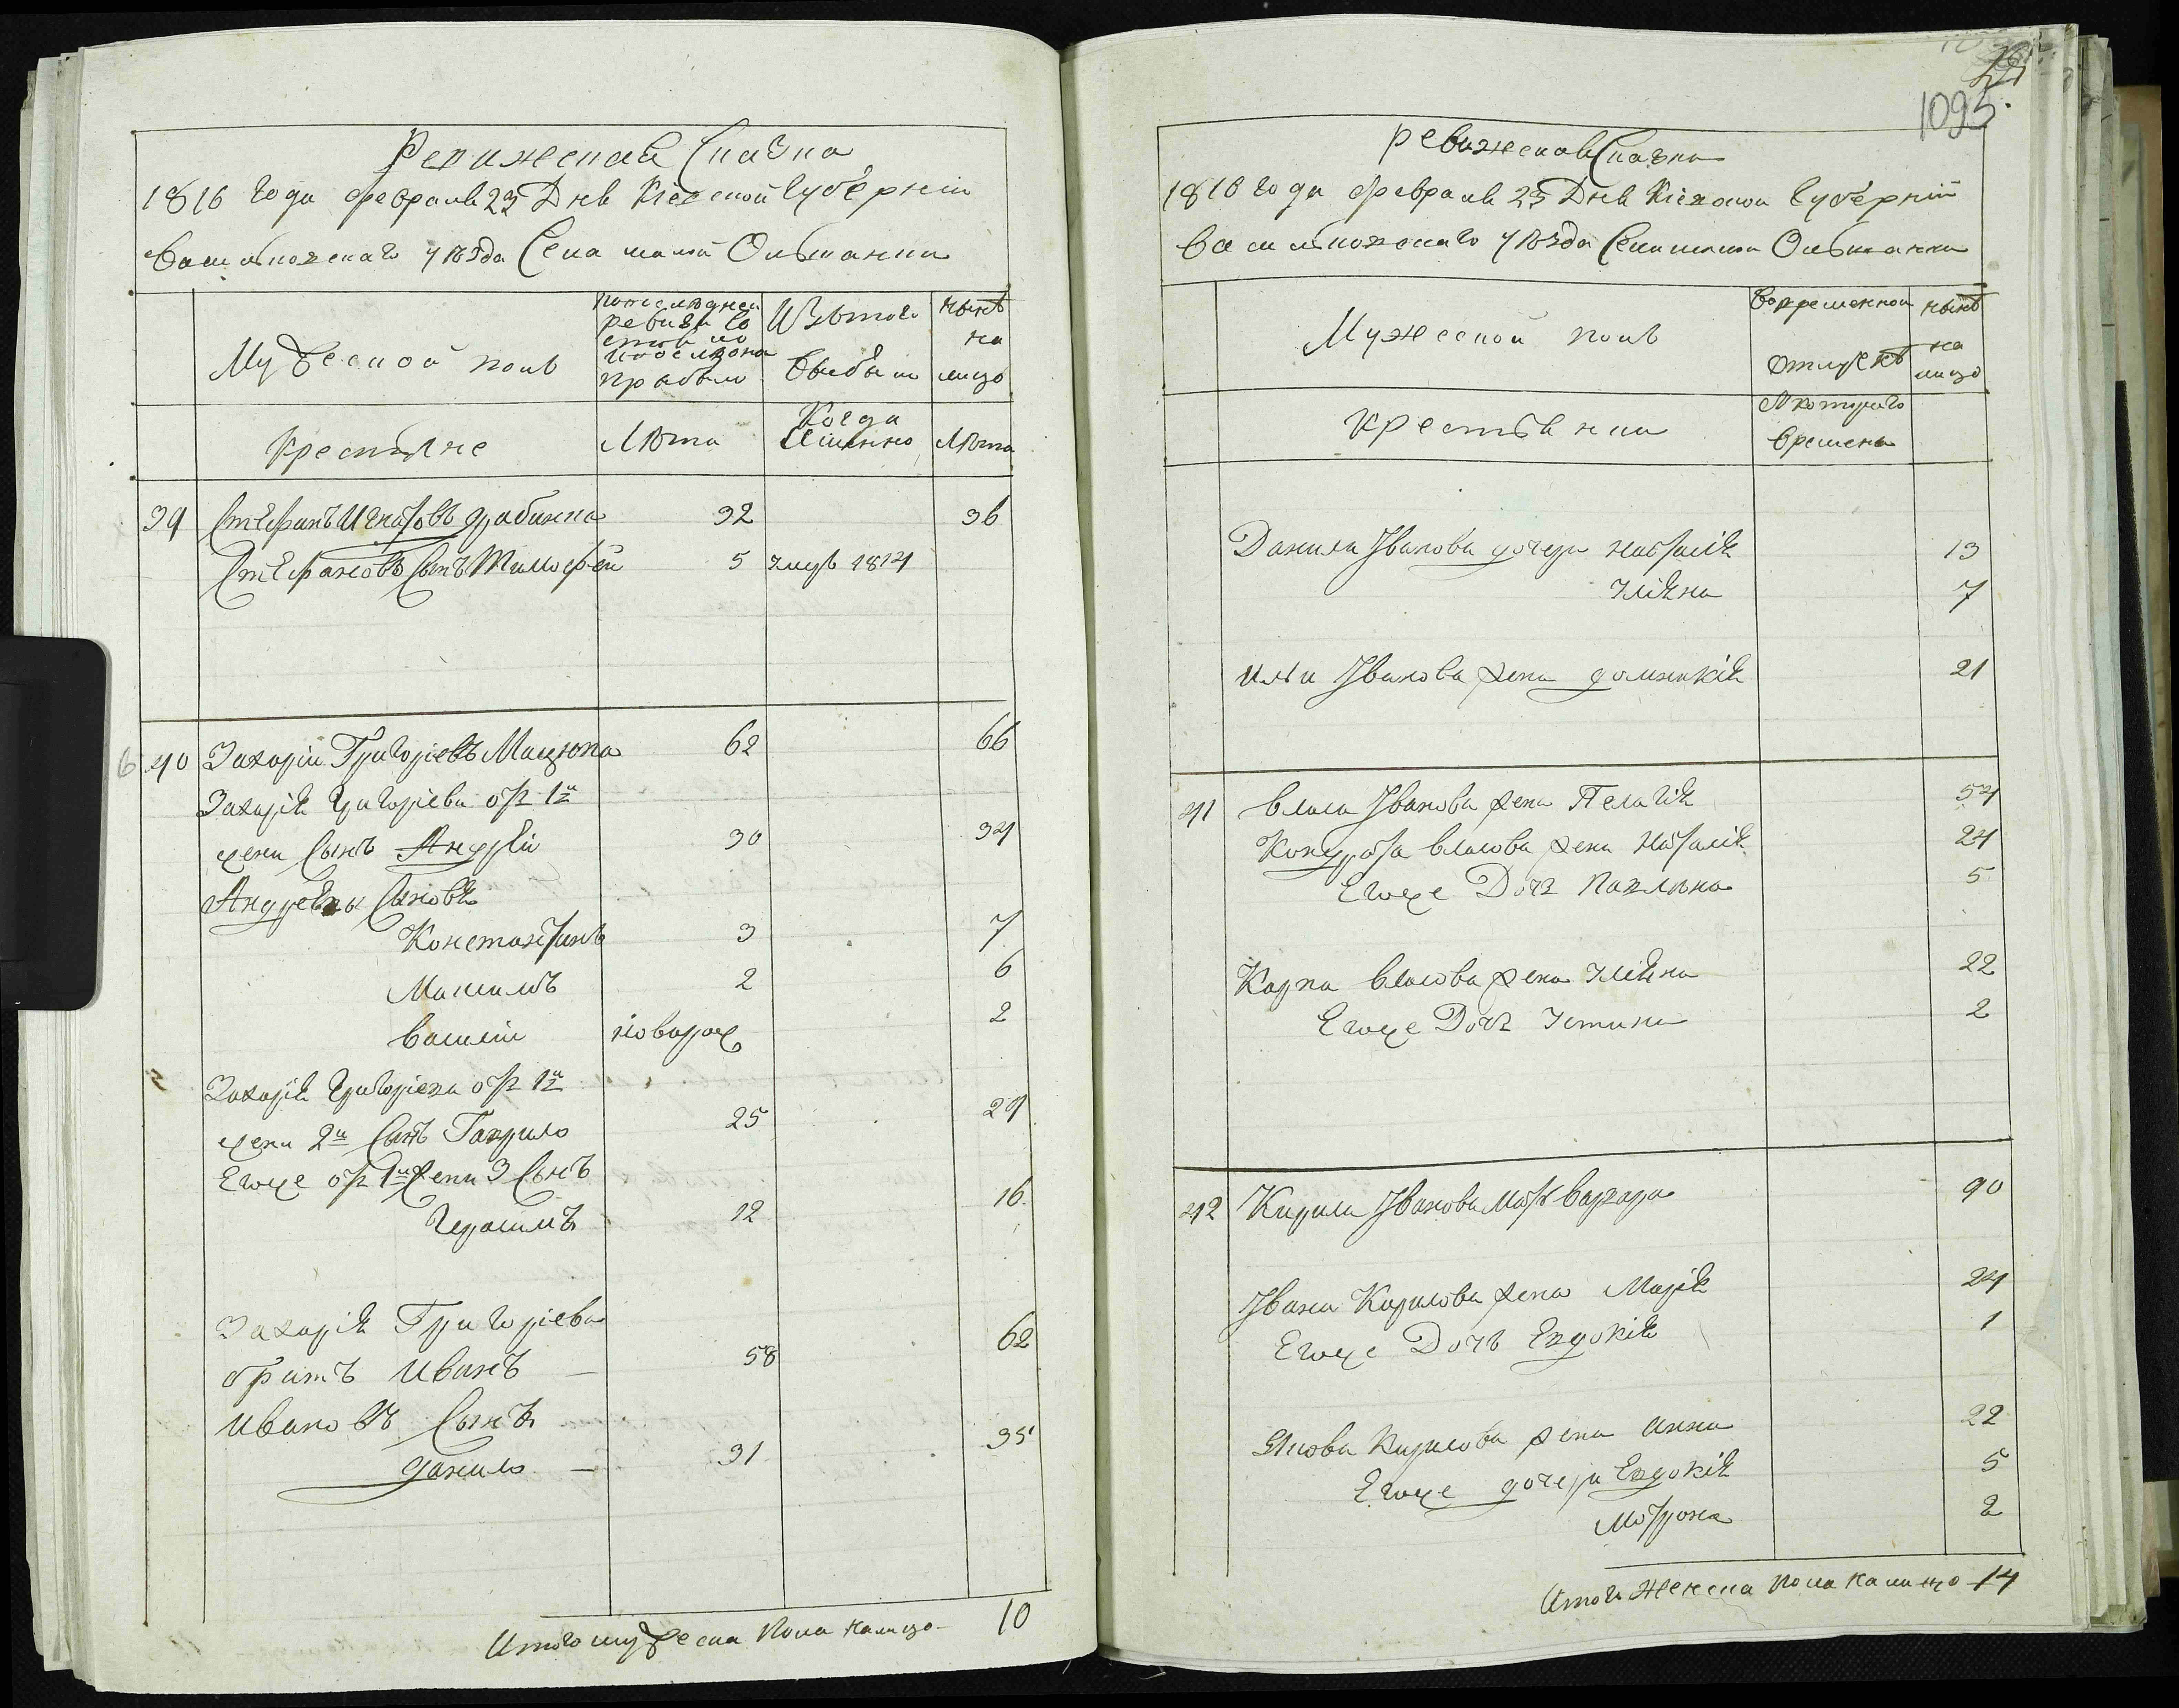 Ревижская Сказка
1816 года февраля 23 Дня Кіевской Губерніи
Васильковскаго уѣзда Села малой Ольшанки
Мужеской полъ
последней ревизи
прабыло
Изътого выбыли
нынѣ на лицо
Крестьяне
Лѣта
Когда Именно
Лѣта
39 Стефанъ Игнатовъ Драбинка 32 36
Стефановъ Сынъ Тимофей 5 умръ 1814
40 Захарій Григоріевъ Мацюпа 62 66
Захарія Григоріева отъ 1й
жены Сынъ Андрей 30 34
Андреевы Сыновья
Константинъ 3 7
Максимъ 2 6
Василій новорож 2
Захарія Григоріева отъ 1й
жены 2й Сынъ Гаврило 25 29
Егоже отъ 1й жены 3 Сынъ
Герасимъ 12 16
Захарія Григоріева
братъ Иванъ — 58 62
Ивановъ Сынъ
Данило — 31 35
Итого мужеска пола налицо 10
1095.
Ревижская Сказка
1816 года февраля 23 Дня Кіевской Губерніи
Васильковскаго уѣзда Села малой Ольшанки
Мужеской полъ
Вовременной отлучкѣ
нынѣ на лицо
Крестьянки
Скотораго времени
Данила Іванова дочери Наталія 13
Уліяна 7
Ильи Іванова жена Домникія 21
41 Власа Іванова жена Пелагія 54
Кондрата Власова жена Наталія 24
Егоже Дочь Павлина 5
Карпа Власова жена Уліяна 22
Егоже Дочь Устина 2
42 Кирила Іванова мать Варвара 90
Івана Кирилова жена Марія 24
Егоже Дочь Евдокія 1
Якова Кирилова жена Анна 22
Егоже дочери Евдокія 5
Мотрона 2
Итого Женска пола налицо 14